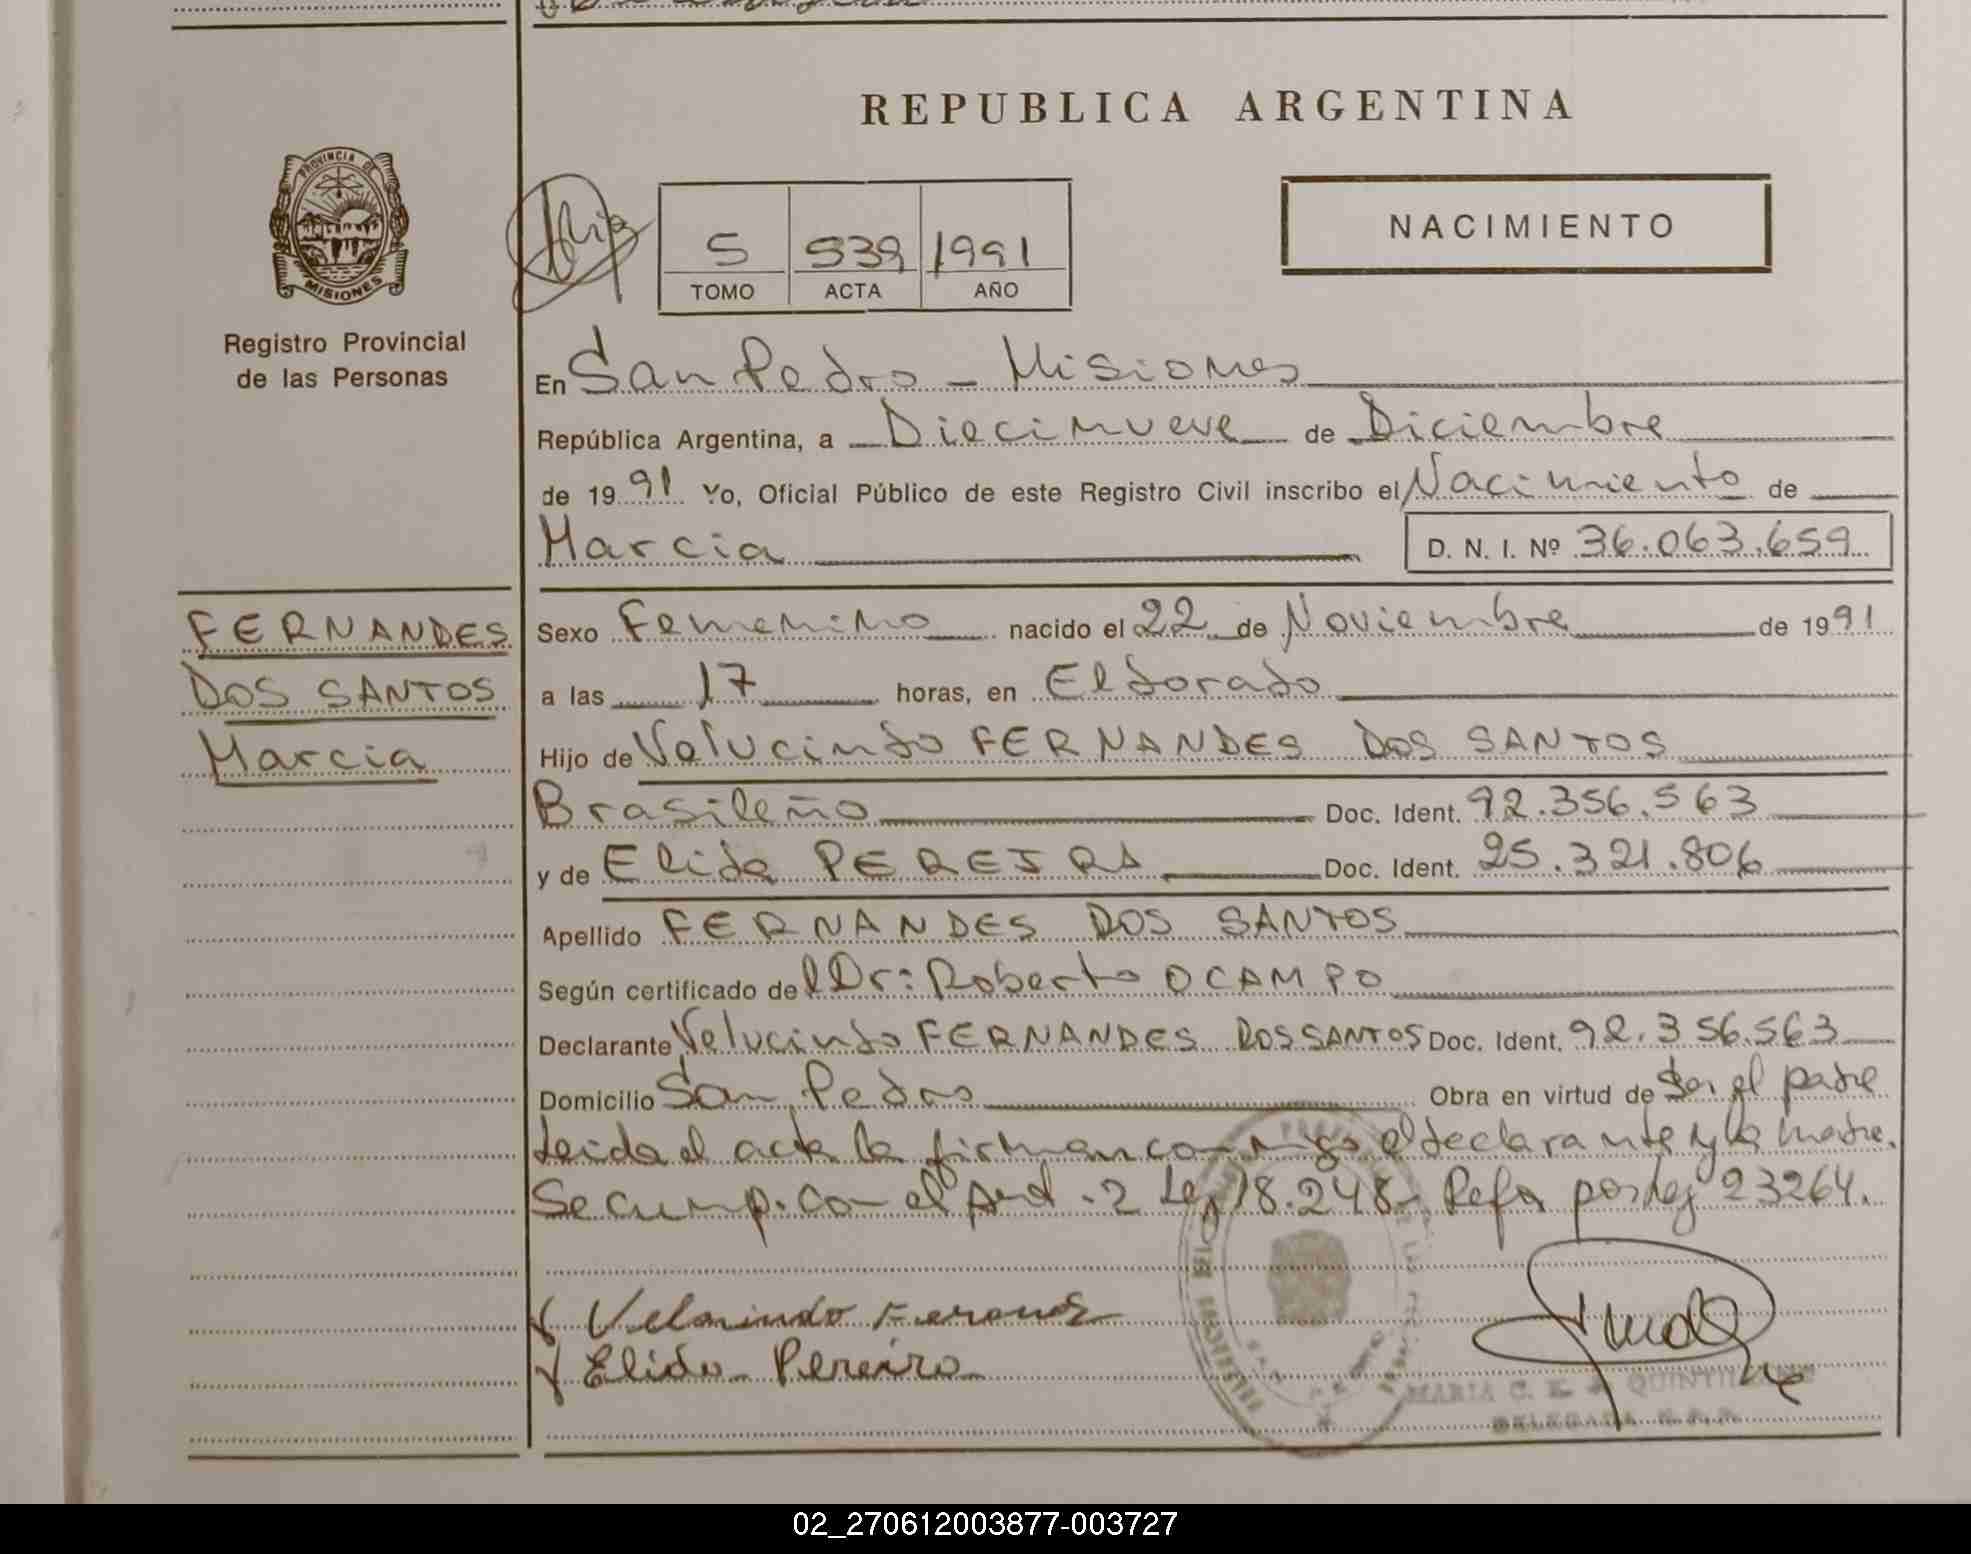 REPUBLICA ARGENTINA
PROVINCIA DE
MISIONES
Registro Provincial
de las Personas
5 539 1991
TOMO ACTA AÑO
NACIMIENTO
En San Pedro - Misiones
República Argentina, a Diecinueve de Diciembre
de 1991 Yo, Oficial Público de este Registro Civil inscribo el Nacimiento de
Marcia D. N. I. Nº 36.063.659
FERNANDES
DOS SANTOS
Marcia
Sexo Femenino nacido el 22 de Noviembre de 1991
a las 17 horas, en Eldorado
Hijo de Velucindo FERNANDES DOS SANTOS
Brasileño Doc. Ident. 92.356.563
y de Elida PEREIRA Doc. Ident. 25.321.806
Apellido FERNANDES DOS SANTOS
Según certificado del Dr: Roberto OCAMPO
Declarante Velucindo FERNANDES DOS SANTOS Doc. Ident. 92.356.563
Domicilio San Pedro Obra en virtud de Ser el padre
Leida el acta la firman conmigo el declarante y la madre.
Se cump. con el Art. 2 Ley 18.248- Refor por Ley 23264.
Elida Pereira
MARIA C.
DELEGADA R.P.P.
02_270612003877-003727